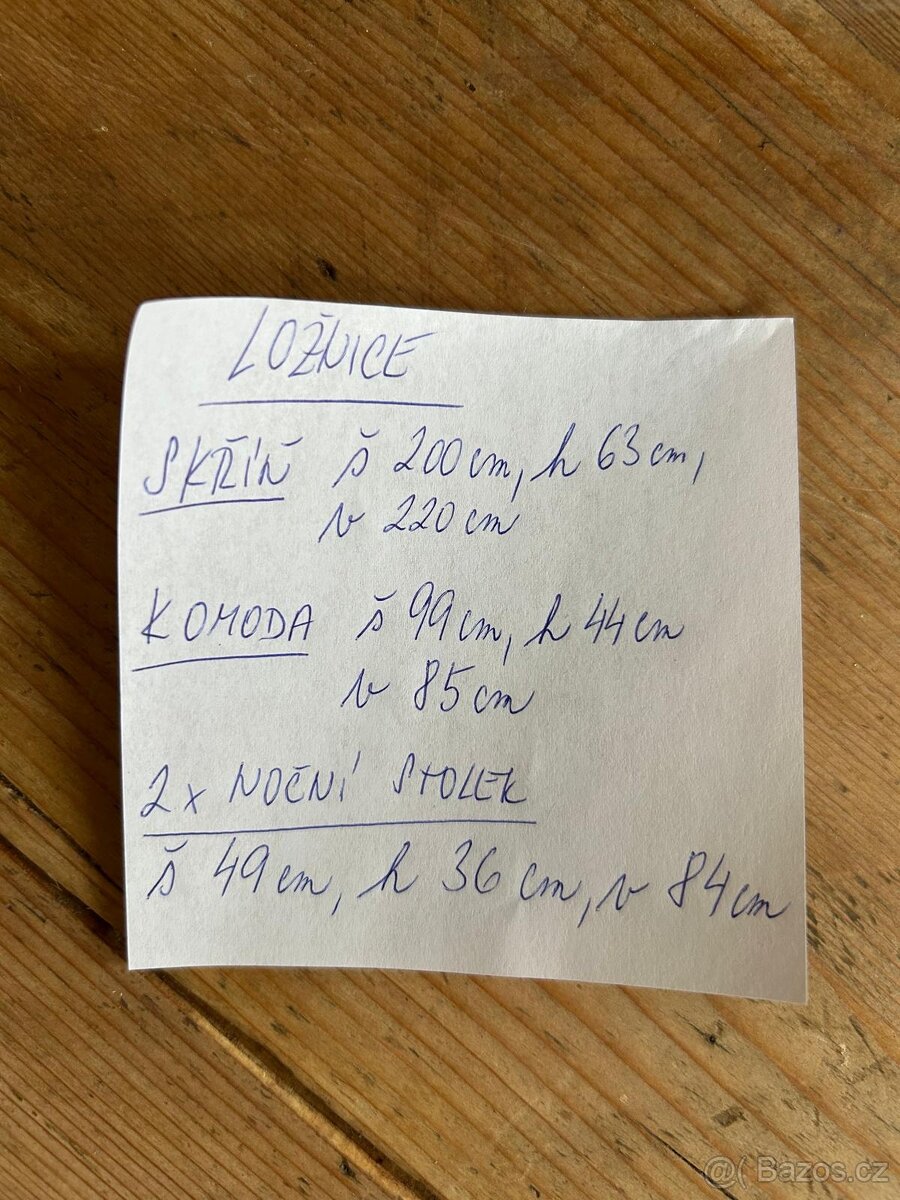 LOŽNICE
SKŘÍŇ š 200cm, h 63cm,
v 220cm
KOMODA š 99cm, h 44cm
v 85cm
2x NOČNÍ STOLEK
š 49cm, h 36cm, v 84cm
@( Bazos.cz